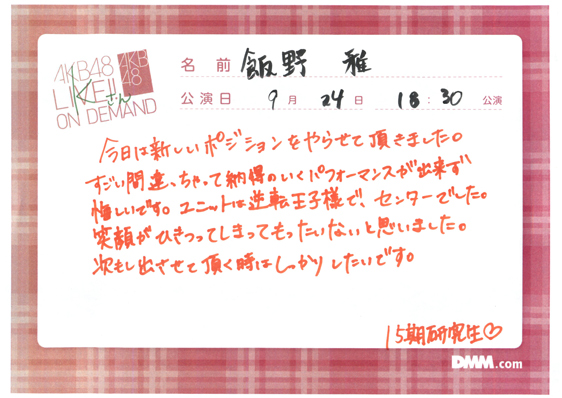 AKB48
LIKE!!
さん
ON DEMAND
AKB
48
名前 飯野 雅
公演日 9月 24日 18:30 公演
今日は新しいポジションをやらせて頂きました。
すごい間違っちゃって納得のいくパフォーマンスが出来ず
悔しいです。ユニットは逆転王子様で、センターでした。
笑顔がひきつってしまってもったいないと思いました。
次もし出させて頂く時はしっかりしたいです。
15期研究生♡
DMM.com